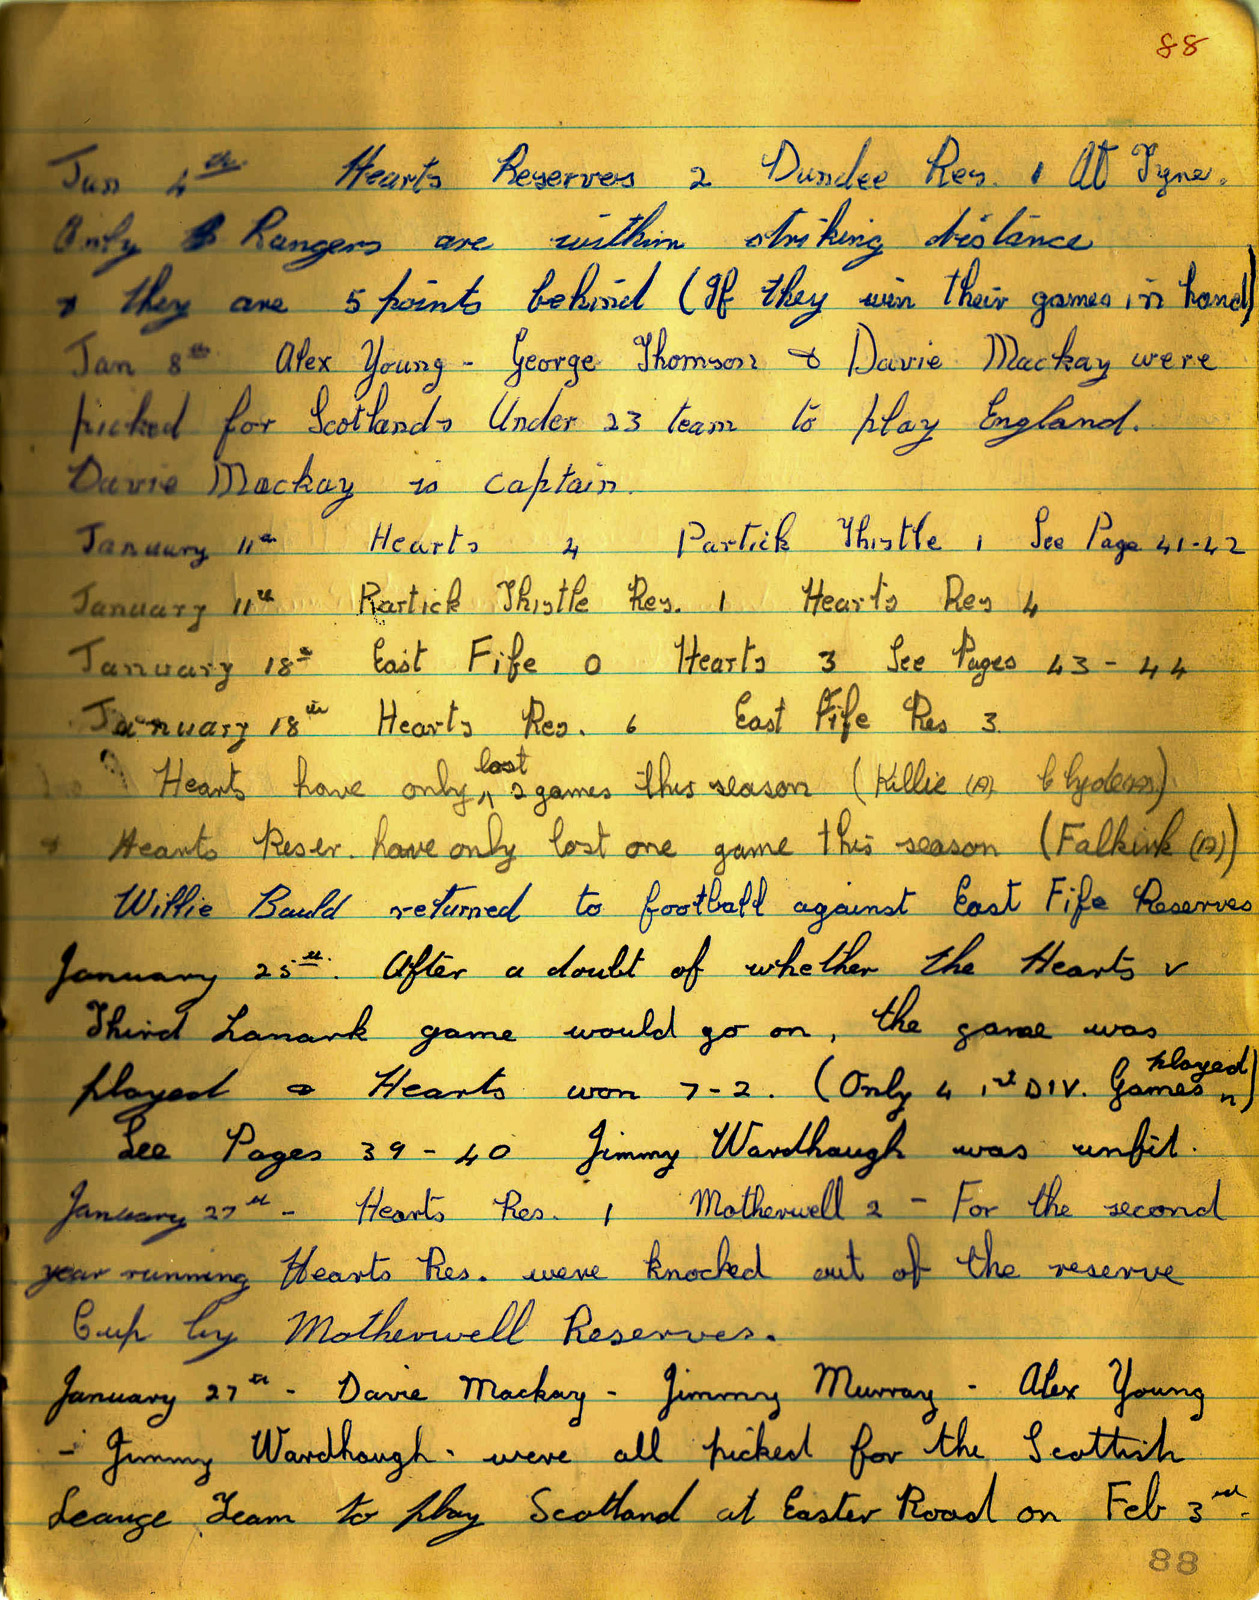 88
Jan 4th Hearts Reserves 2 Dundee Res. 1 At Tyne.
Only Rangers are within striking distance
& they are 5 points behind (If they win their games in hand)
Jan 8th Alex Young - George Thomson & Davie Mackay were
picked for Scotlands Under 23 team to play England.
Davie Mackay is captain.
January 11th Hearts 4 Partick Thistle 1 See Page 41-42
January 11th Partick Thistle Res. 1 Hearts Res 4
January 18th East Fife 0 Hearts 3 See Pages 43 - 44
January 18th Hearts Res. 6 East Fife Res 3.
Hearts have only lost 2 games this season (Killie (A) Clyde (A))
& Hearts Reser. have only lost one game this season (Falkirk (A))
Willie Bauld returned to football against East Fife Reserves
January 25th. After a doubt of whether the Hearts v
Third Lanark game would go on, the game was
played & Hearts won 7-2. (Only 4 1st DIV. Games played)
See Pages 39 - 40 Jimmy Wardhaugh was unfit.
January 27th - Hearts Res. 1 Motherwell 2 - For the second
year running Hearts Res. were knocked out of the reserve
Cup by Motherwell Reserves.
January 27th - Davie Mackay - Jimmy Murray - Alex Young
- Jimmy Wardhaugh - were all picked for the Scottish
Leauge Team to play Scotland at Easter Road on Feb 3rd.
88